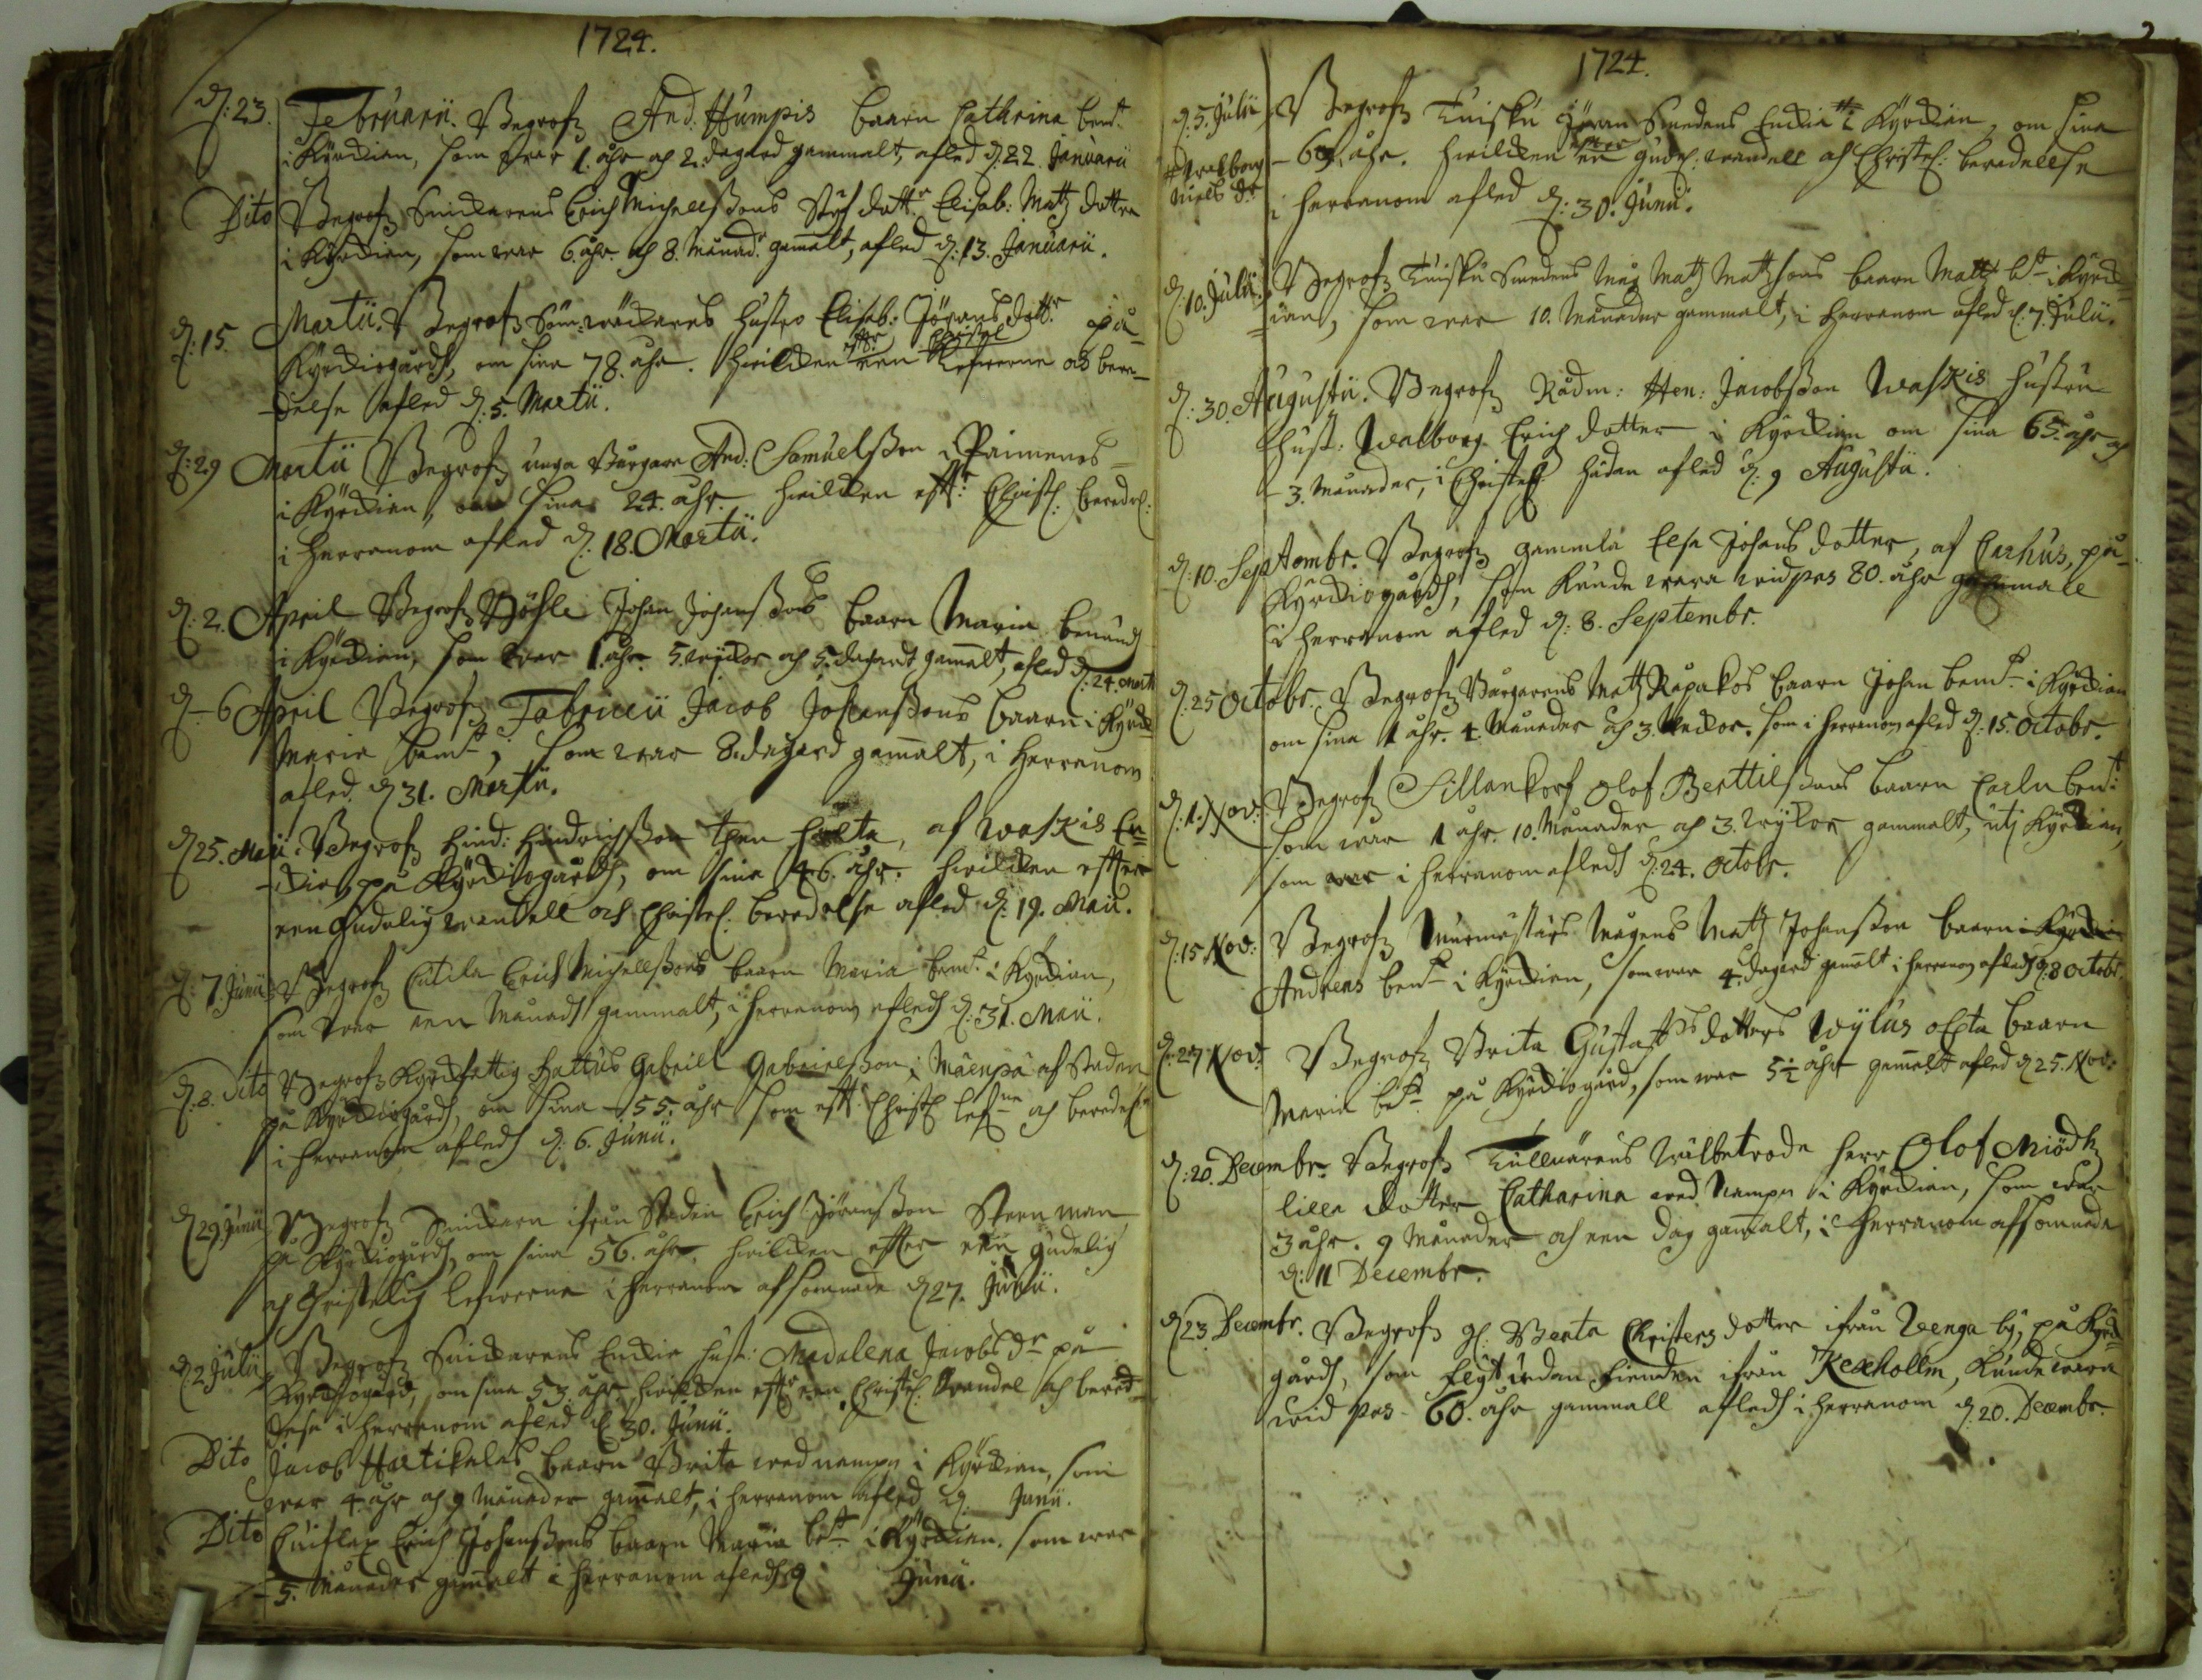 1724.
d: 23. Februarii. Begrofz And. Humpis baarn Cathrina bemt
i Kyrckian, som war 1. åhr och 2. dagard gammalt, afled d. 22. Januarii
Dito Begrofz Snickarens Erich Michellssons Styf dottr Elisab: Matz dotter
i Kyrckian, som war 6. åhr. och 8. Månadr gamalt, afled d: 13. Januarii.
d: 15. Martii. Begrofz hustro Elisab: Jörans dottr på
Kyrckiogårdh, om sina 78. åhr. hwilcken efter een Christel Lefwerne och bere-
delse afled d: 5. Martii.
d: 29 Martii Begrofz unga Borgare And: Samuelsson Paimenes
i Kyrckian, om sina 24. åhr. hwilcken efftr Christel: beredel:
i Herranom afled d: 18. Martii.
d: 2. April Begrofz Johan Johanssons baarn Maria benemd
i Kyrckian, som war 1. åhr. 5. wyckor och 5. dagardt gamalt, afled d: 24. Marti
d- 6 April Begrofz Fabricii Jacob Johanssons baarn i Kyrck
Maria bemt, som war 8. dagard gamalt, i Herranom
afled. d 31. Martii.
d 25. Maii. Begrofz Hind: Hindrichsson then halta, af Waskis En-
ckia, på Kyrckiogårdh, om sina 46. åhr. hwilcken effter
een Gudelig wandell och Christel. beredelse afled d: 19. Maii.
d: 7. Junii Begrofz Cutila Erich Michellssons baarn Maria bemt i Kyrckian,
som war een Månadh gammalt, i Herranom afledh d: 31. Maii.
d: 8. Dito Begrofz Kyrckfattig hattus Gabriell Gabrielsson i Mäenpä af Staden
på Kyrckiogårdh, om sina 55. åhr som efft. Christel lefne och beredelse
i Herranom afledh d: 6. Junii.
d 29. Junii Begrofz Snickaren ifrån Staden Erich Jöransson Steenman
på Kyrckiogårdh, om sina 56. åhr. hwilcken effter een gudelig
och Christelig lefwerne i Herranom afsomnade d 27. Junii.
d 2 Julii Begrofz Snickarens Enckia hust: Madalena Jacobs dr på
Kyrckiogård, om sina 53 åhr, hwilcken efftr een Christel. Wandel och bered-
else i Herranom afled d 30. Junii.
Dito Jacob Hartikalas baarn Brita wed nampn i Kyrckian, som
war 4 åhr och 9 Månader gamalt, i Herranom afled d. Junii.
Dito Erich Johanssons baarn Maria bett i Kyrckian. som war
5. Månader gamalt i Herranom afledh d Junii.
1724.
d. 5. Julii Begrofz Tuisku Jöran Smedens Enckia # i Kyrckian, om sina
# Walborg Niels dr 69. åhr. hwilcken efter een gudel. wandell och Christel: beredellse
i Herranom afled d: 30. Junii.
d: 10. Julii. Begrofz Tuisku Smedens Måg Matz Matzsons baarn Mattz bt i Kyrck-
ian, som war 10. Månader gammalt, i Herranom afled d. 7. Julii.
d: 30. Augustii. Begrofz Rådm: Hen: Jacobsson Waskis hustru
hust: Walborg Erich dotter i Kyrckian om sina 65. åhr och
3. Månader, i Christel hädan afled d. 9 Augustii.
d: 10. Septembr. Begrofz gammla Elsa Johans dotter, af Carhus, på
Kyrckiogårdh, som kunde wara widpas 80. åhr gammall
i Herranom afled d: 8. Septembr.
d. 25 Octobr. Begrofz Borgarens Matz Räpakos baarn Johan bemt i Kyrckian
om sina 1 åhr. 4. Månader och 3. Weckor. som i Herranom afled d: 15. Octobr.
d. 1. Nov: Begrofz Sillankorf Olof Berttilssons baarn Carln bent
som war 1 åhr. 10. Månader och 3. Wykor gammalt, uti Kyrckian,
som war i Herranom afledh d: 24. Octobr.
d: 15 Nov: Begrofz Murmestars Mågens Matz Johansson baarn i Kyrckia
Andreas bent i Kyrckian, som war 4. dagard gamalt i Herranom afledh d. 8 Octobr.
d. 27 Nov: Begrofz Brita Gustafs dotters Wylus ächta baarn
Maria bet på Kyrckiogård, som war 5½ åhr gamalt afled d 25. Nov:
d: 20. Decembr. Begrofz Tullnärens Wälbetrode Herr Olof Miödhz
lilla dotter Catharina wed Nampn i Kyrckian, som war
3 åhr. 9 Månader och een dag gamalt, i Herranom afsomnade
d: 11 Decembr.
d 23 Decembr. Begrofz gl. Berta Christers dotter ifrån Wenga by, på Kyrck-
gårdh, som flyt undan fienden ifrån Kexhollm, kunde wara
wid pas 60. åhr gammall afledh i Herranom d. 20. Decembr.